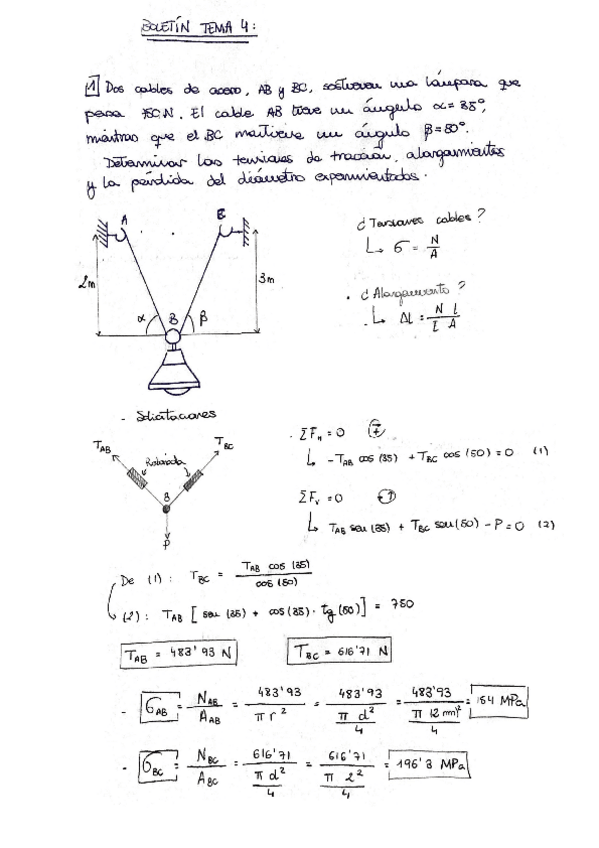 BOLETÍN TEMA 4:
1 Dos cables de acero, AB y BC, sostienen una lámpara que
pesa 750N. El cable AB tiene un ángulo α=35°,
mientras que el BC mantiene un ángulo β=50°.
Determinar las tensiones de tracción, alargamientos
y la pérdida del diámetro experimentados.
A
2m
3m
α
B
β
¿Tensiones cables?
↳ σ = N/A
• ¿Alargamiento?
↳ ΔL = N L / E A
- Solicitaciones
T_AB
T_BC
B
P
ΣF_H = 0
↳ -T_AB cos (35) + T_BC cos (50) = 0 (1)
ΣF_V = 0
↳ T_AB sen (35) + T_BC sen (50) - P = 0 (2)
De (1): T_BC = T_AB cos (35) / cos (50)
(2): T_AB [sen (35) + cos (35) · tg (50)] = 750
T_AB = 483'93 N
T_BC = 616'71 N
- σ_AB = N_AB / A_AB = 483'93 / π r² = 483'93 / (π d²/4) = 483'93 / (π (2 mm)²/4) = 154 MPa
- σ_BC = N_BC / A_BC = 616'71 / (π d²/4) = 616'71 / (π 2²/4) = 196'3 MPa